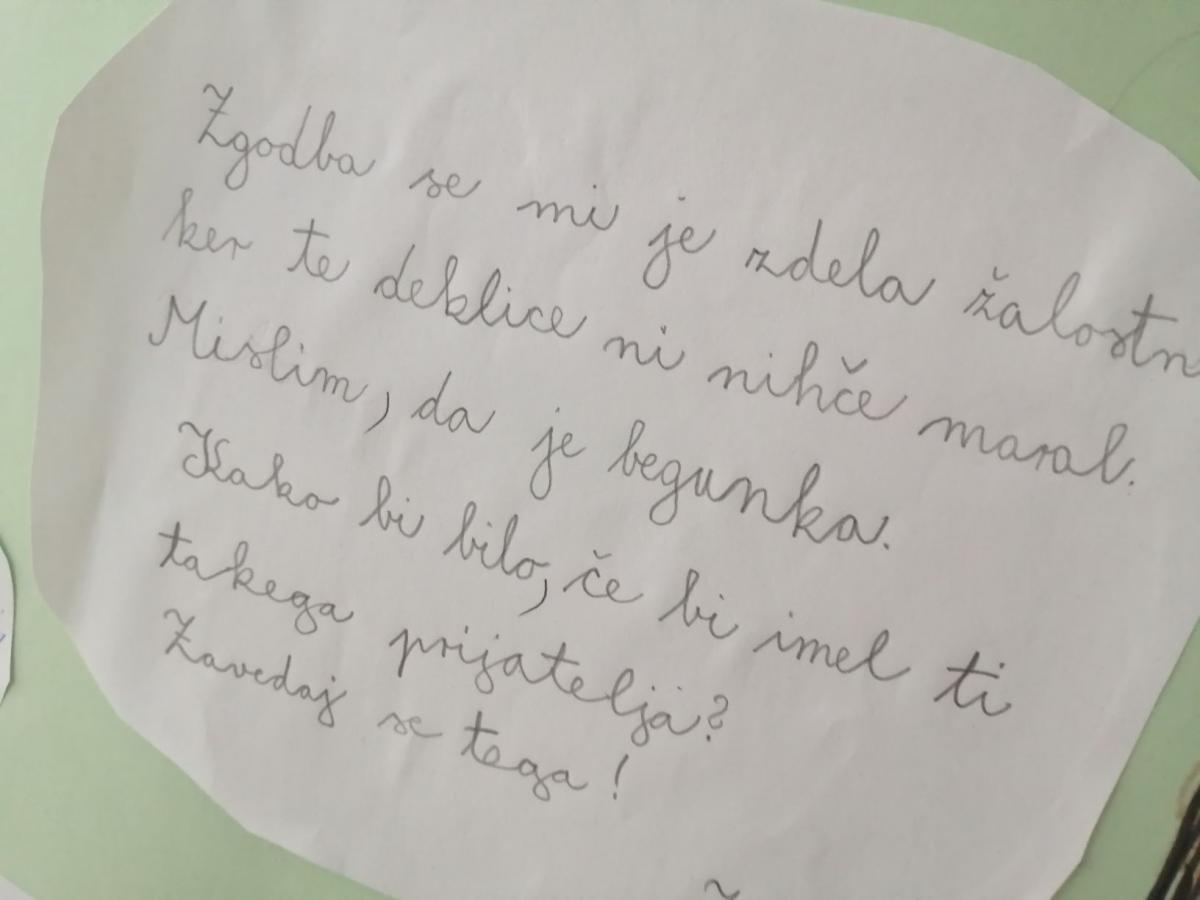 Zgodba se mi je zdela žalostn
ker te deklice ni nihče maral.
Mislim, da je begunka.
Kako bi bilo, če bi imel ti
takega prijatelja?
Zavedaj se tega!